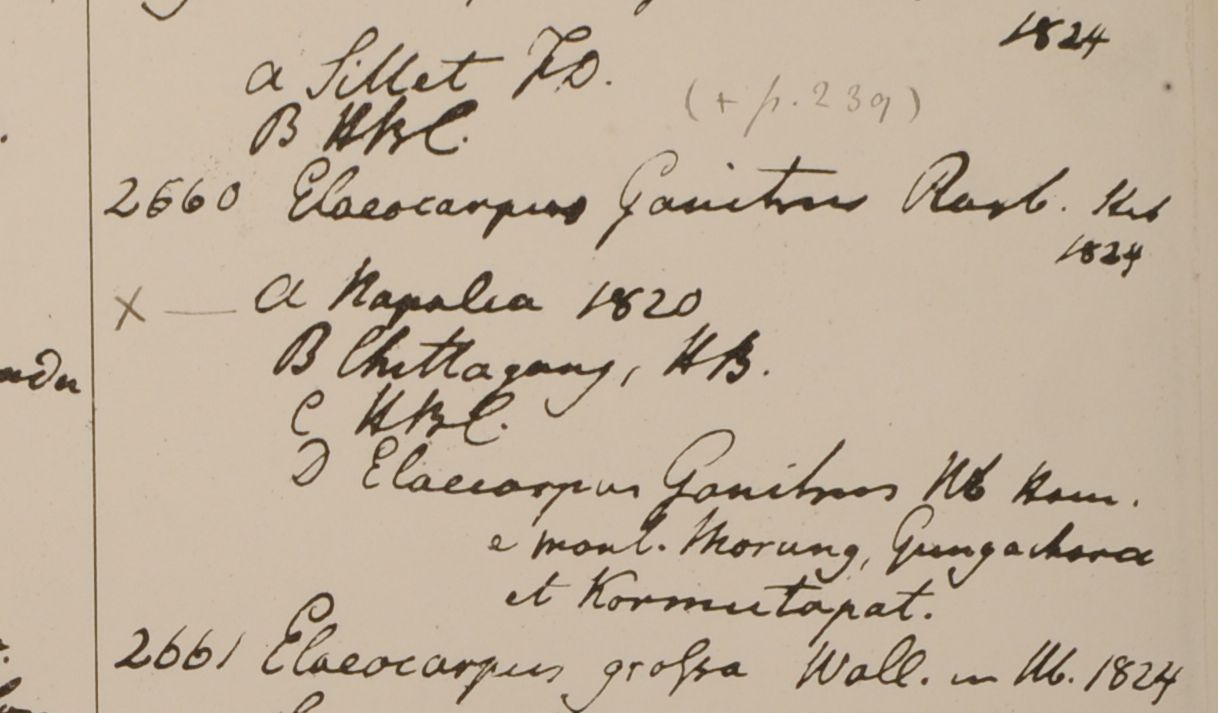 1824
a Sillet F.D.
(+ p. 239)
B HBC.
2660 Elaeocarpus Ganitrus Roxb. Hb
1824
X — a Napalia 1820
B Chittagong, HB.
C HBC.
D Elaeocarpus Ganitrus Hb Ham.
e mont. Morung, Gungachora
et Kormutapat.
2661 Elaeocarpus grossa Wall. in Hb. 1824